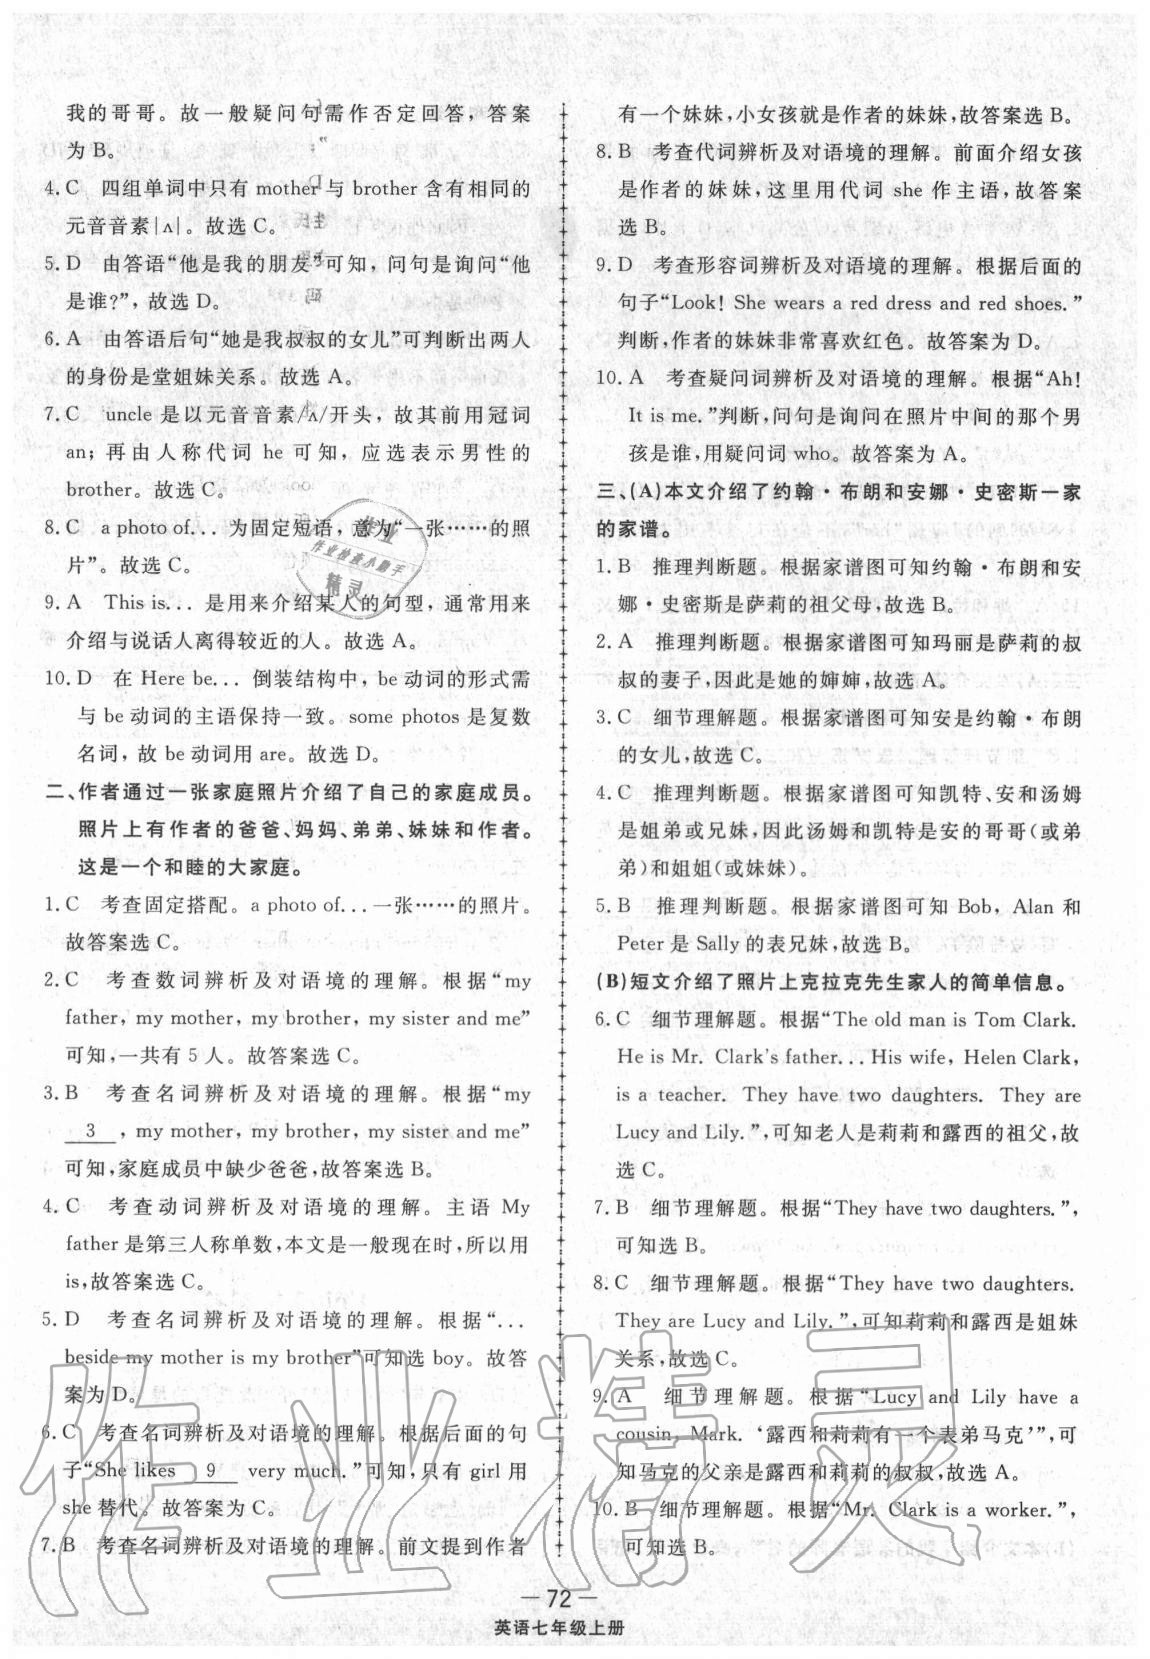 我的哥哥。故一般疑问句需作否定回答，答案
为 B。
4. C　四组单词中只有 mother 与 brother 含有相同的
元音音素|ʌ|。故选 C。
5. D　由答语“他是我的朋友”可知，问句是询问“他
是谁?”，故选 D。
6. A　由答语后句“她是我叔叔的女儿”可判断出两人
的身份是堂姐妹关系。故选 A。
7. C　uncle 是以元音音素/ʌ/开头，故其前用冠词
an；再由人称代词 he 可知，应选表示男性的
brother。故选 C。
8. C　a photo of... 为固定短语，意为“一张……的照
片”。故选 C。
9. A　This is... 是用来介绍某人的句型，通常用来
介绍与说话人离得较近的人。故选 A。
10. D　在 Here be... 倒装结构中，be 动词的形式需
与 be 动词的主语保持一致。some photos 是复数
名词，故 be 动词用 are。故选 D。
二、作者通过一张家庭照片介绍了自己的家庭成员。
照片上有作者的爸爸、妈妈、弟弟、妹妹和作者。
这是一个和睦的大家庭。
1. C　考查固定搭配。a photo of... 一张……的照片。
故答案选 C。
2. C　考查数词辨析及对语境的理解。根据“my
father, my mother, my brother, my sister and me”
可知，一共有 5 人。故答案选 C。
3. B　考查名词辨析及对语境的理解。根据“my
3 , my mother, my brother, my sister and me”
可知，家庭成员中缺少爸爸，故答案选 B。
4. C　考查动词辨析及对语境的理解。主语 My
father 是第三人称单数，本文是一般现在时，所以用
is，故答案选 C。
5. D　考查名词辨析及对语境的理解。根据“...
beside my mother is my brother”可知选 boy。故答
案为 D。
6. C　考查名词辨析及对语境的理解。根据后面的句
子“She likes 9 very much.”可知，只有 girl 用
she 替代。故答案为 C。
7. B　考查名词辨析及对语境的理解。前文提到作者
有一个妹妹，小女孩就是作者的妹妹，故答案选 B。
8. B　考查代词辨析及对语境的理解。前面介绍女孩
是作者的妹妹，这里用代词 she 作主语，故答案
选 B。
9. D　考查形容词辨析及对语境的理解。根据后面的
句子“Look! She wears a red dress and red shoes.”
判断，作者的妹妹非常喜欢红色。故答案为 D。
10. A　考查疑问词辨析及对语境的理解。根据“Ah!
It is me.”判断，问句是询问在照片中间的那个男
孩是谁，用疑问词 who。故答案为 A。
三、(A)本文介绍了约翰·布朗和安娜·史密斯一家
的家谱。
1. B　推理判断题。根据家谱图可知约翰·布朗和安
娜·史密斯是萨莉的祖父母，故选 B。
2. A　推理判断题。根据家谱图可知玛丽是萨莉的叔
叔的妻子，因此是她的婶婶，故选 A。
3. C　细节理解题。根据家谱图可知安是约翰·布朗
的女儿，故选 C。
4. C　推理判断题。根据家谱图可知凯特、安和汤姆
是姐弟或兄妹，因此汤姆和凯特是安的哥哥(或弟
弟)和姐姐(或妹妹)。
5. B　推理判断题。根据家谱图可知 Bob，Alan 和
Peter 是 Sally 的表兄妹，故选 B。
(B)短文介绍了照片上克拉克先生家人的简单信息。
6. C　细节理解题。根据“The old man is Tom Clark.
He is Mr. Clark's father... His wife, Helen Clark,
is a teacher. They have two daughters. They are
Lucy and Lily.”，可知老人是莉莉和露西的祖父，故
选 C。
7. B　细节理解题。根据“They have two daughters.”，
可知选 B。
8. C　细节理解题。根据“They have two daughters.
They are Lucy and Lily.”，可知莉莉和露西是姐妹
关系，故选 C。
9. A　细节理解题。根据“Lucy and Lily have a
cousin, Mark. ‘露西和莉莉有一个表弟马克’”，可
知马克的父亲是露西和莉莉的叔叔，故选 A。
10. B　细节理解题。根据“Mr. Clark is a worker.”，
可知选 B。
作业精灵
作业
作业检查小助手
精灵
— 72 —
英语七年级上册